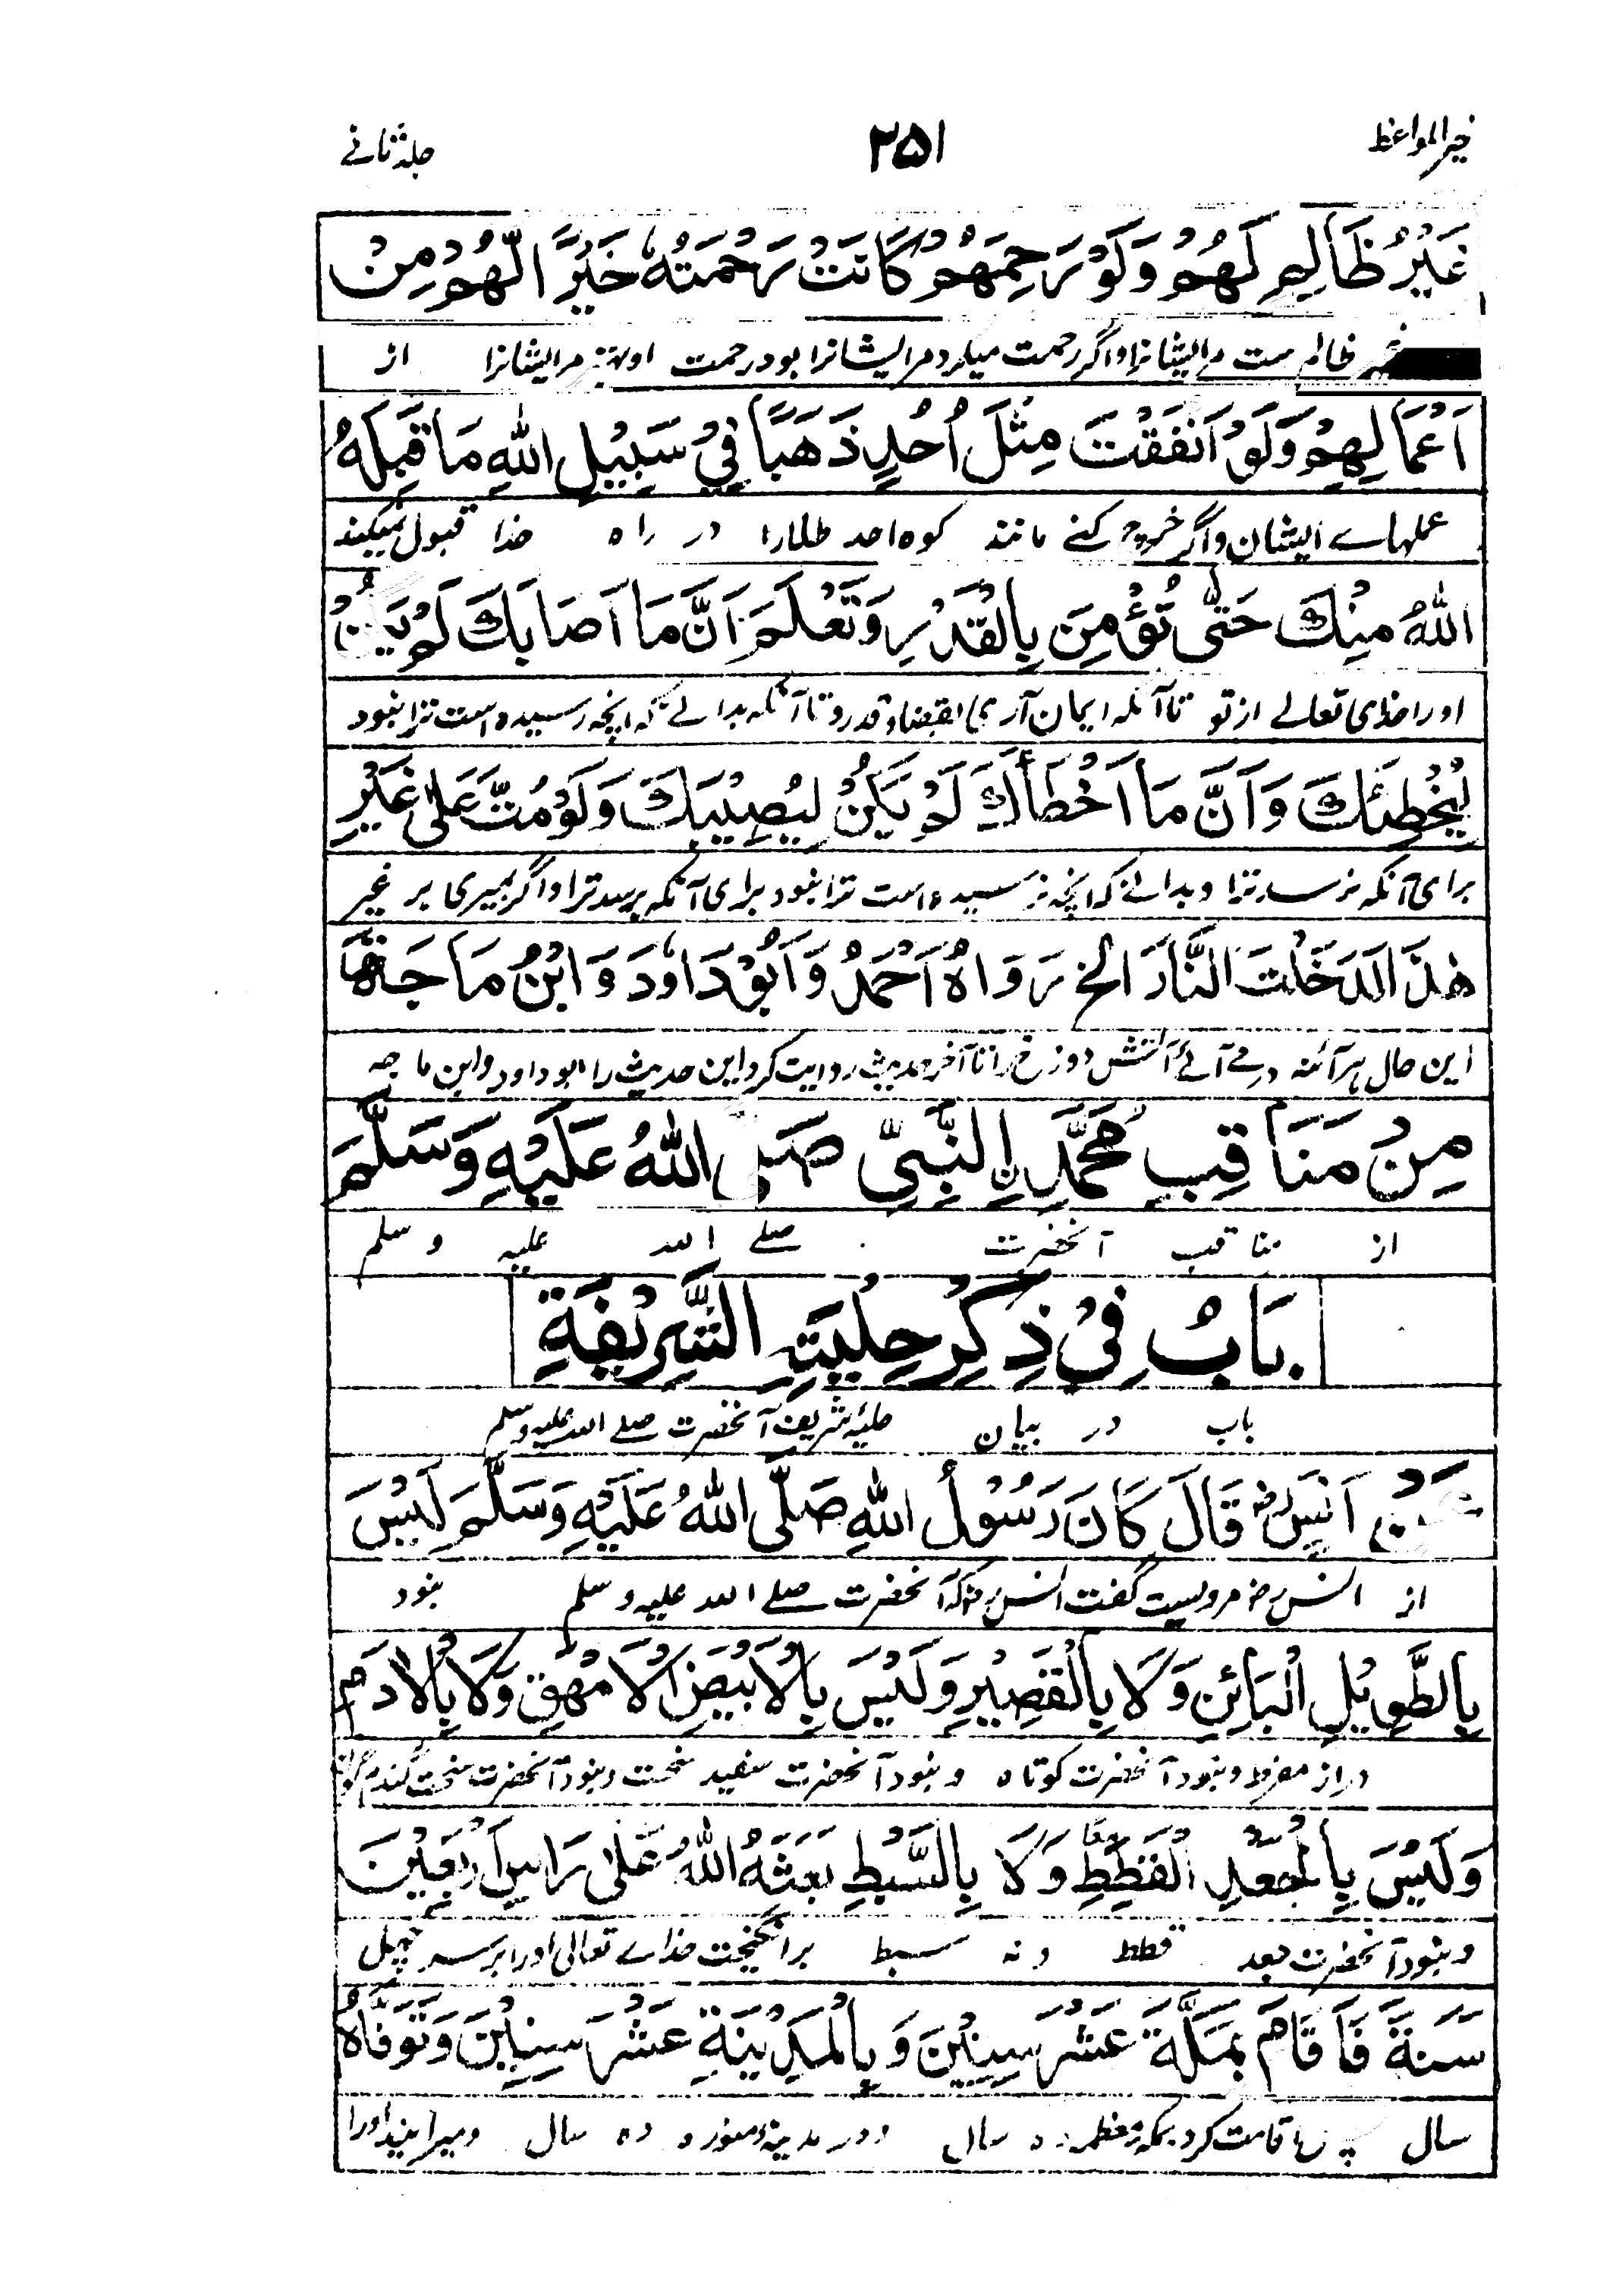 خیر المواعظ
۳۵۱
جلد ثانے
غَيْرُ ظَالِمٍ لَهُمْ وَلَوْ رَحِمَهُمْ كَانَتْ رَحْمَتُهٗ خَيْرًا لَّهُمْ مِنْ
ظالم ست مرایشانرا و اگر رحمت میکرد مرایشانرا بود رحمت او بهتر مرایشانرا از
اَعْمَالِهِمْ وَلَوْ اَنْفَقْتَ مِثْلَ اُحُدٍ ذَهَبًا فِيْ سَبِيْلِ اللّٰهِ مَا قَبِلَهُ
عملهاے ایشان و اگر خرچ کنے مانند کوه احد طلا را در راه خدا قبول نمیکند
اللّٰهُ مِنْكَ حَتّٰى تُؤْمِنَ بِالْقَدَرِ وَتَعْلَمَ اَنَّ مَا اَصَابَكَ لَمْ يَكُنْ
اورا خدای تعالے از تو تا آنکه ایمان آری بقضا و قدر و تا آنکه بدانے که انچه رسیده است ترا نبود
لِيُخْطِئَكَ وَاَنَّ مَا اَخْطَأَكَ لَمْ يَكُنْ لِيُصِيْبَكَ وَلَوْ مُتَّ عَلٰى غَيْرِ
برای آنکه نرسد ترا و بدانے که انچه نرسیده است ترا نبود برای آنکه برسد ترا و اگر بمیری بر غیر
هٰذَا لَدَخَلْتَ النَّارَ الخ رَوَاهُ اَحْمَدُ وَاَبُوْ دَاوٗدَ وَابْنُ مَاجَةَ
این حال هر آئنه درمے آئے آتش دوزخ را تا آخر حدیث روایت کرد این حدیث را ابو داود و ابن ماجه
مِنْ مَنَاقِبِ مُحَمَّدِ نِ النَّبِيِّ صَلَّى اللّٰهُ عَلَيْهِ وَسَلَّمَ
از مناقب آنحضرت صلے الله علیه و سلم
بَابٌ فِيْ ذِكْرِ حِلْيَتِهِ الشَّرِيْفَةِ
باب در بیان حلیۂ شریف آنحضرت صلے الله علیه و سلم
عَنْ اَنَسٍ رض قَالَ كَانَ رَسُوْلُ اللّٰهِ صَلَّى اللّٰهُ عَلَيْهِ وَسَلَّمَ لَيْسَ
از انس رض مرویست گفت انس رض که آنحضرت صلے الله علیه و سلم نبود
بِالطَّوِيْلِ الْبَائِنِ وَلَا بِالْقَصِيْرِ وَلَيْسَ بِالْاَبْيَضِ الْاَمْهَقِ وَلَا بِالْاٰدَمِ
دراز مفرط و نبود آنحضرت کوتاه و نبود آنحضرت سفید سخت و نبود آنحضرت سخت گندم گون
وَلَيْسَ بِالْجَعْدِ الْقَطَطِ وَلَا بِالسَّبْطِ بَعَثَهُ اللّٰهُ عَلٰى رَاْسِ اَرْبَعِيْنَ
و نبود آنحضرت جعد قطط و نه سبط برانگیخت خداے تعالی اورا بر سر چهل
سَنَةً فَاَقَامَ بِمَكَّةَ عَشْرَ سِنِيْنَ وَبِالْمَدِيْنَةِ عَشْرَ سِنِيْنَ وَتَوَفَّاهُ
سال پس اقامت کرد بمکه معظمه ده سال و در مدینه منوره ده سال و میرانید اورا